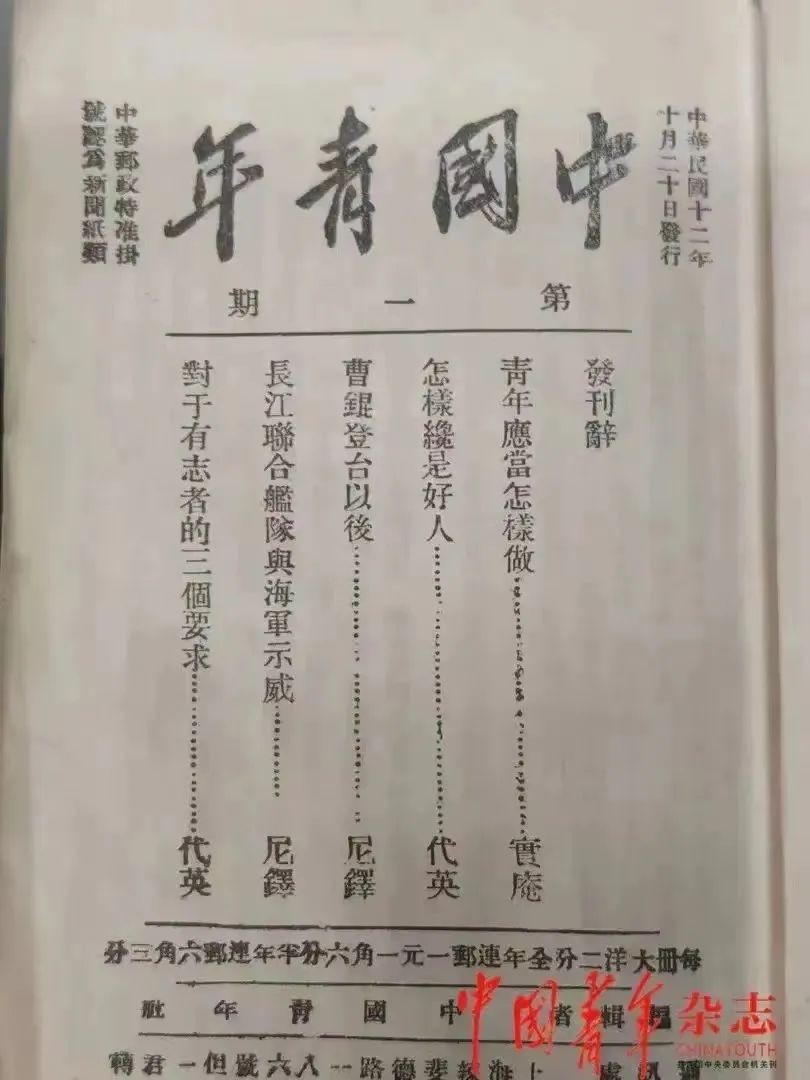 中華民國十二年
十月二十日發行
中國青年
中華郵政特准掛
號認爲新聞紙類
第一期
發刊辭
青年應當怎樣做……………………實庵
怎樣纔是好人……………………代英
曹錕登台以後……………………尼鐸
長江聯合艦隊與海軍示威…………尼鐸
對于有志者的三個要求……………代英
每冊大洋二分全年連郵一元一角六分半年連郵六角三分
編輯者 中國青年社
上海辣斐德路一八六號但一君轉
中國青年杂志
CHINA YOUTH
共青团中央委员会机关刊